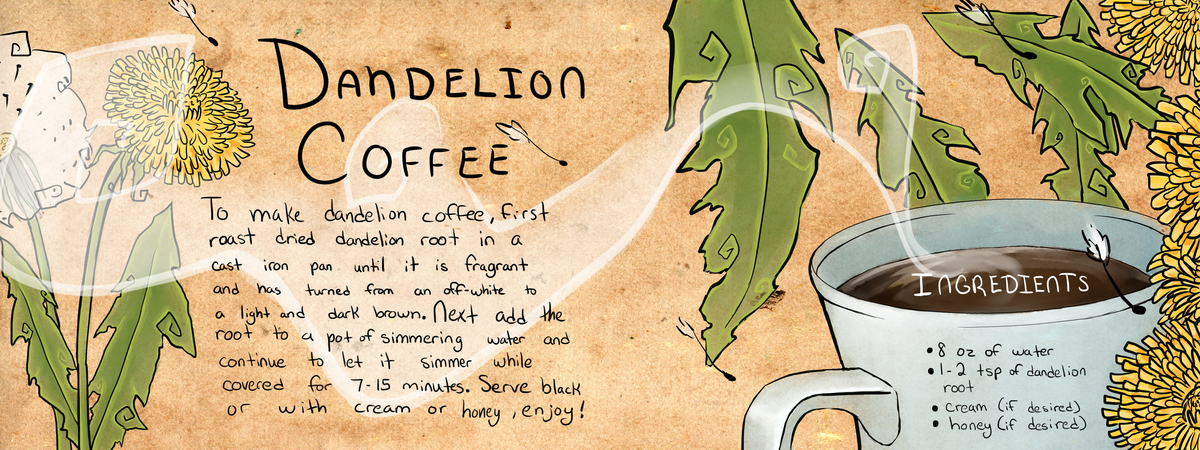 DANDELION
COFFEE
To make dandelion coffee, first
roast dried dandelion root in a
cast iron pan until it is fragrant
and has turned from an off-white to
a light and dark brown. Next add the
root to a pot of simmering water and
continue to let it simmer while
covered for 7-15 minutes. Serve black
or with cream or honey, enjoy!
INGREDIENTS
• 8 oz of water
• 1-2 tsp of dandelion
root
• cream (if desired)
• honey (if desired)